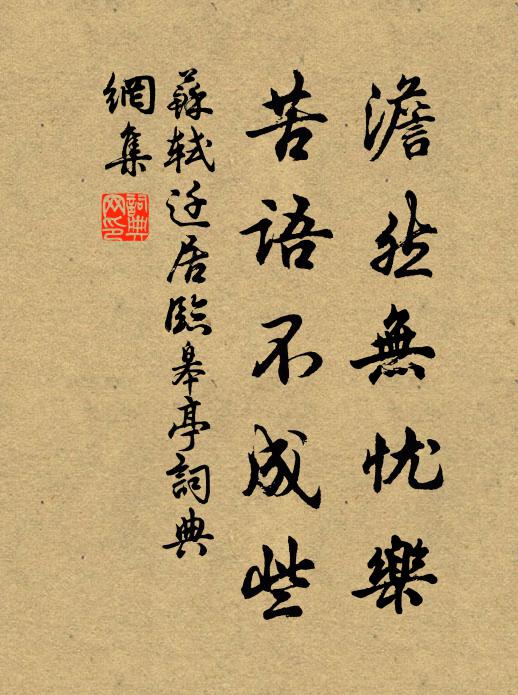 澹然無忧樂
苦語不成些
蘇軾迁居臨皋亭詞典
網集
詞典
网印